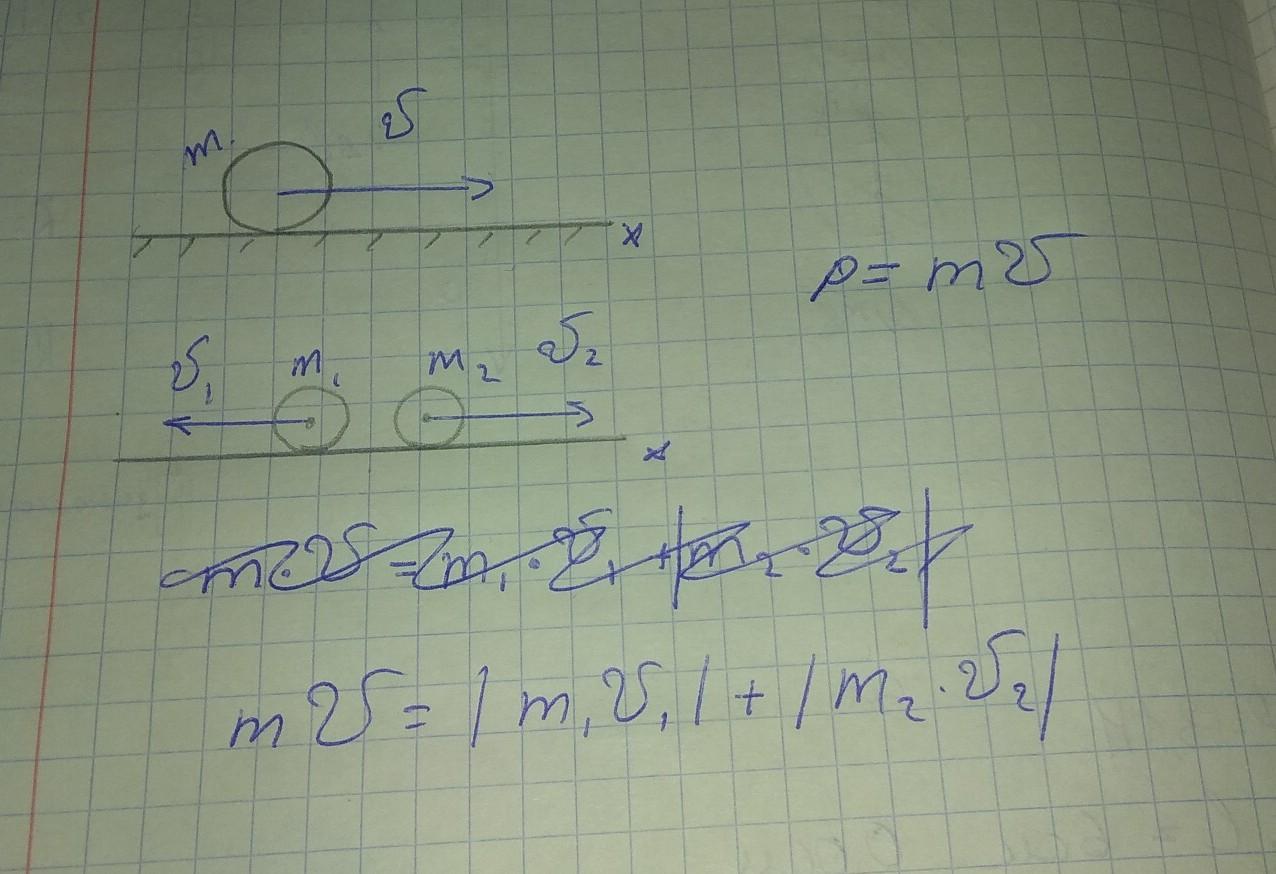 m
υ
x
p = mυ
υ₁ m₁ m₂ υ₂
x
m·υ = m₁·υ₁ + |m₂·υ₂|
mυ = |m₁υ₁| + |m₂·υ₂|